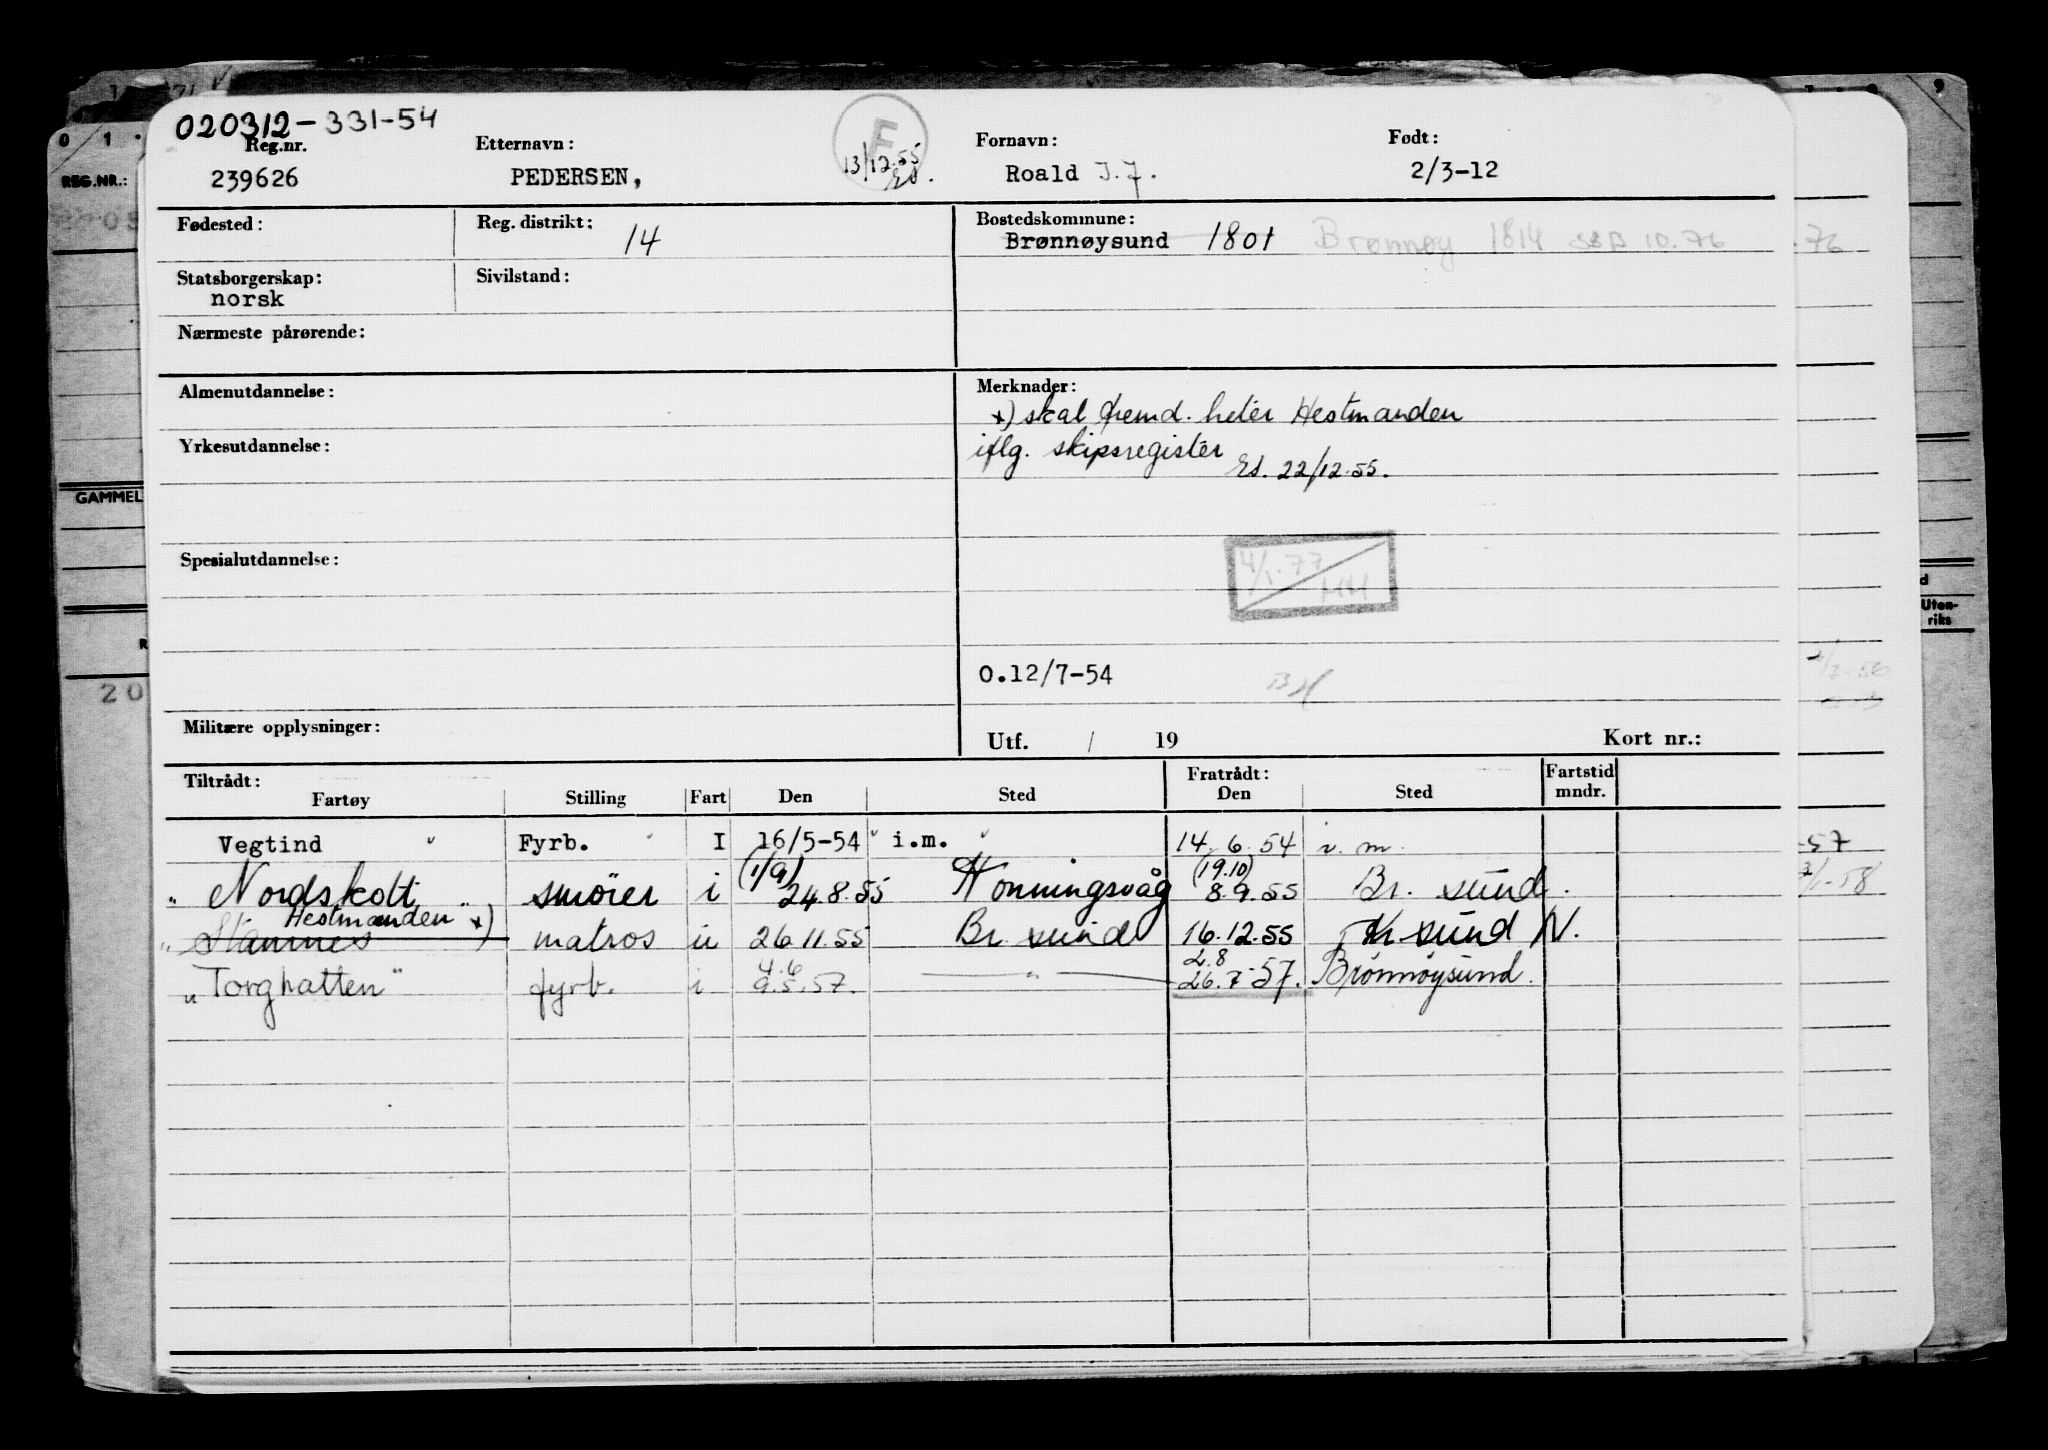 020312-331-54
Reg.nr. Etternavn: F Fornavn: Født:
239626 PEDERSEN, 13/12.55 Roald J.F. 2/3-12
Es.
REG.NR.:
Fødested: Reg. distrikt: 14 Bostedskommune:
Brønnøysund 1801 Brønnøy 1814 SSB 10.76 .76
Statsborgerskap: Sivilstand:
norsk
Nærmeste pårørende:
Almenutdannelse: Merknader:
x) skal fremd. heter Hestmanden
Yrkesutdannelse: iflg. skipsregister
Es. 22/12.55.
GAMMEL
Spesialutdannelse: 4/1.77
MH
Uten-
riks
O.12/7-54
20
Militære opplysninger: Utf. / 19 Kort nr.:
Tiltrådt: Fratrådt: Fartstid
Fartøy Stilling Fart Den Sted Den Sted mndr.
Vegtind " Fyrb. I 16/5-54 " i.m. " 14.6.54 i.m. -57
(1/9) (19.10)
" Nordskott " smører i 24.8.55 Honningsvåg 8.9.55 Br. sund.
Hestmanden x)
" Stamnes matros u 26.11.55 Br. sund 16.12.55 Kr. sund N.
4.6 2.8
" Torghatten " fyrb. i 9.5.57. — " — 26.7-57. Brønnøysund.